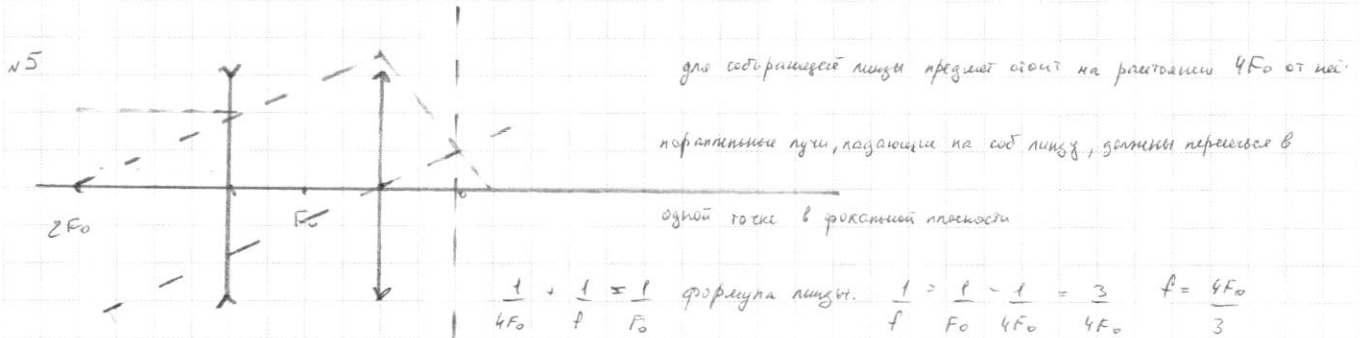 №5
для собирающей линзы предмет стоит на расстоянии 4F₀ от неё.
параллельные лучи, падающие на соб линзу, должны пересечься в
F₀
одной точке в фокальной плоскости
2F₀
1/4F₀ + 1/f = 1/F₀ формула линзы. 1/f = 1/F₀ - 1/4F₀ = 3/4F₀ f = 4F₀/3